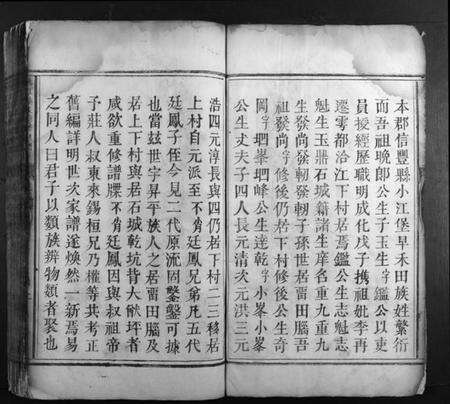 本郡信豐縣小江堡早禾田族姓繁衍
而吾祖晚郎公生子玉生字鑑公以吏
員授經歷職明成化戊子携祖妣李再
遷雩都洽江下村居焉鑑公生志魁志
魁生玉鼎石城籍諸生庠名重九重九
生發尚發軔發軔子孫世居畱田腦吾
祖發尚字修後仍居下村修後公生奇
岡字駟峯駟峰公生達乾字小峯小峯
公生丈夫子四人長元清次元洪三元
浩四元淳長與四仍居下村二三移居
上村自元派至不肖廷鳳兄弟凡五代
廷鳳子侄今見二代原流固鑿鑿可據
也當兹世宇昇平族人之居畱田腦及
居上下村與居石城乾坑背大畎坪者
咸欲重修譜牒不肖廷鳳因與叔祖帝
子莊人叔東來錫桓兄乃權等共考正
舊編詳明世次家譜遂煥然一新焉易
之同人曰君子以類族辨物類者聚也